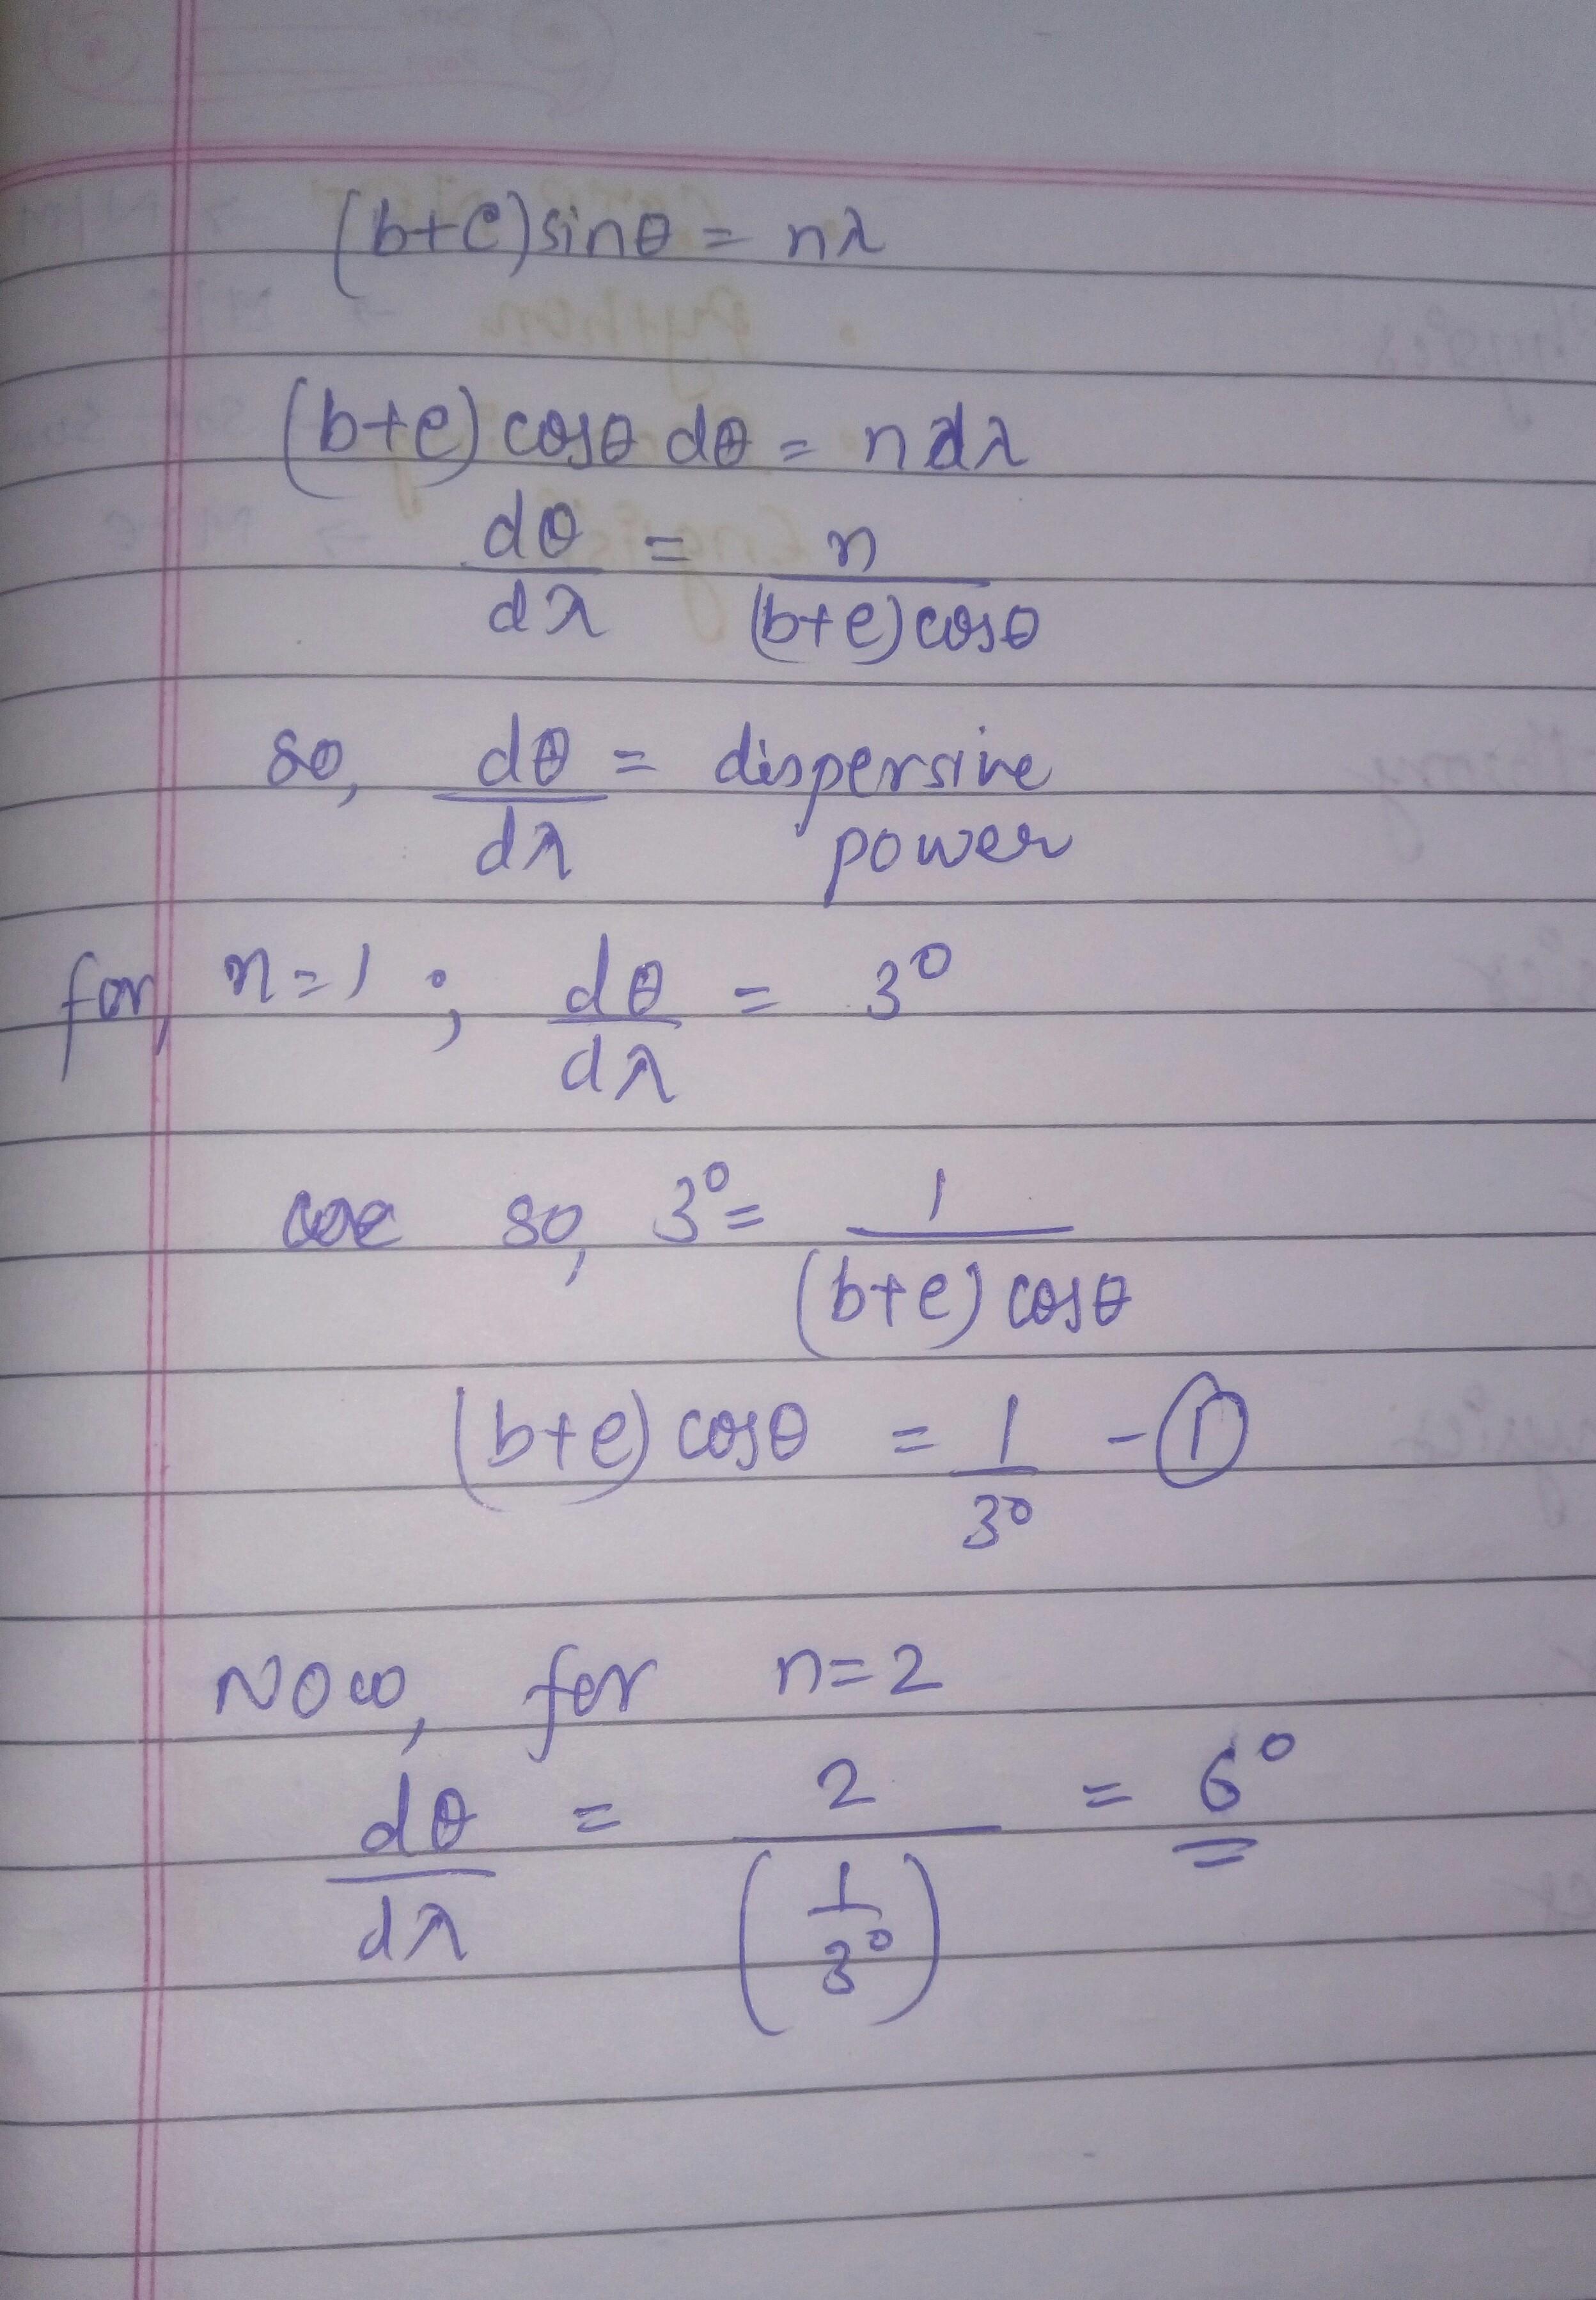 (b+e)sinθ = nλ
(b+e) cosθ dθ = n dλ
dθ/dλ = n/(b+e)cosθ
so, dθ/dλ = dispersive
power
for, n=1 ; dθ/dλ = 3°
so, 3° = 1/(b+e) cosθ
(b+e) cosθ = 1/3° - ①
Now, for n=2
dθ/dλ = 2/(1/3°) = 6°